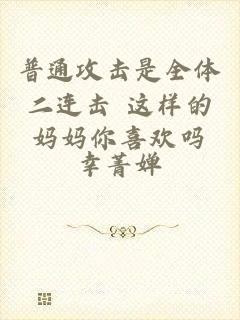 普通攻击是全体
二连击 这样的
妈妈你喜欢吗
幸菁婵